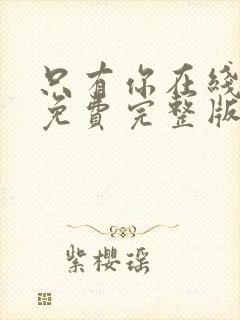 只有你在线
免费完整版
紫樱瑶